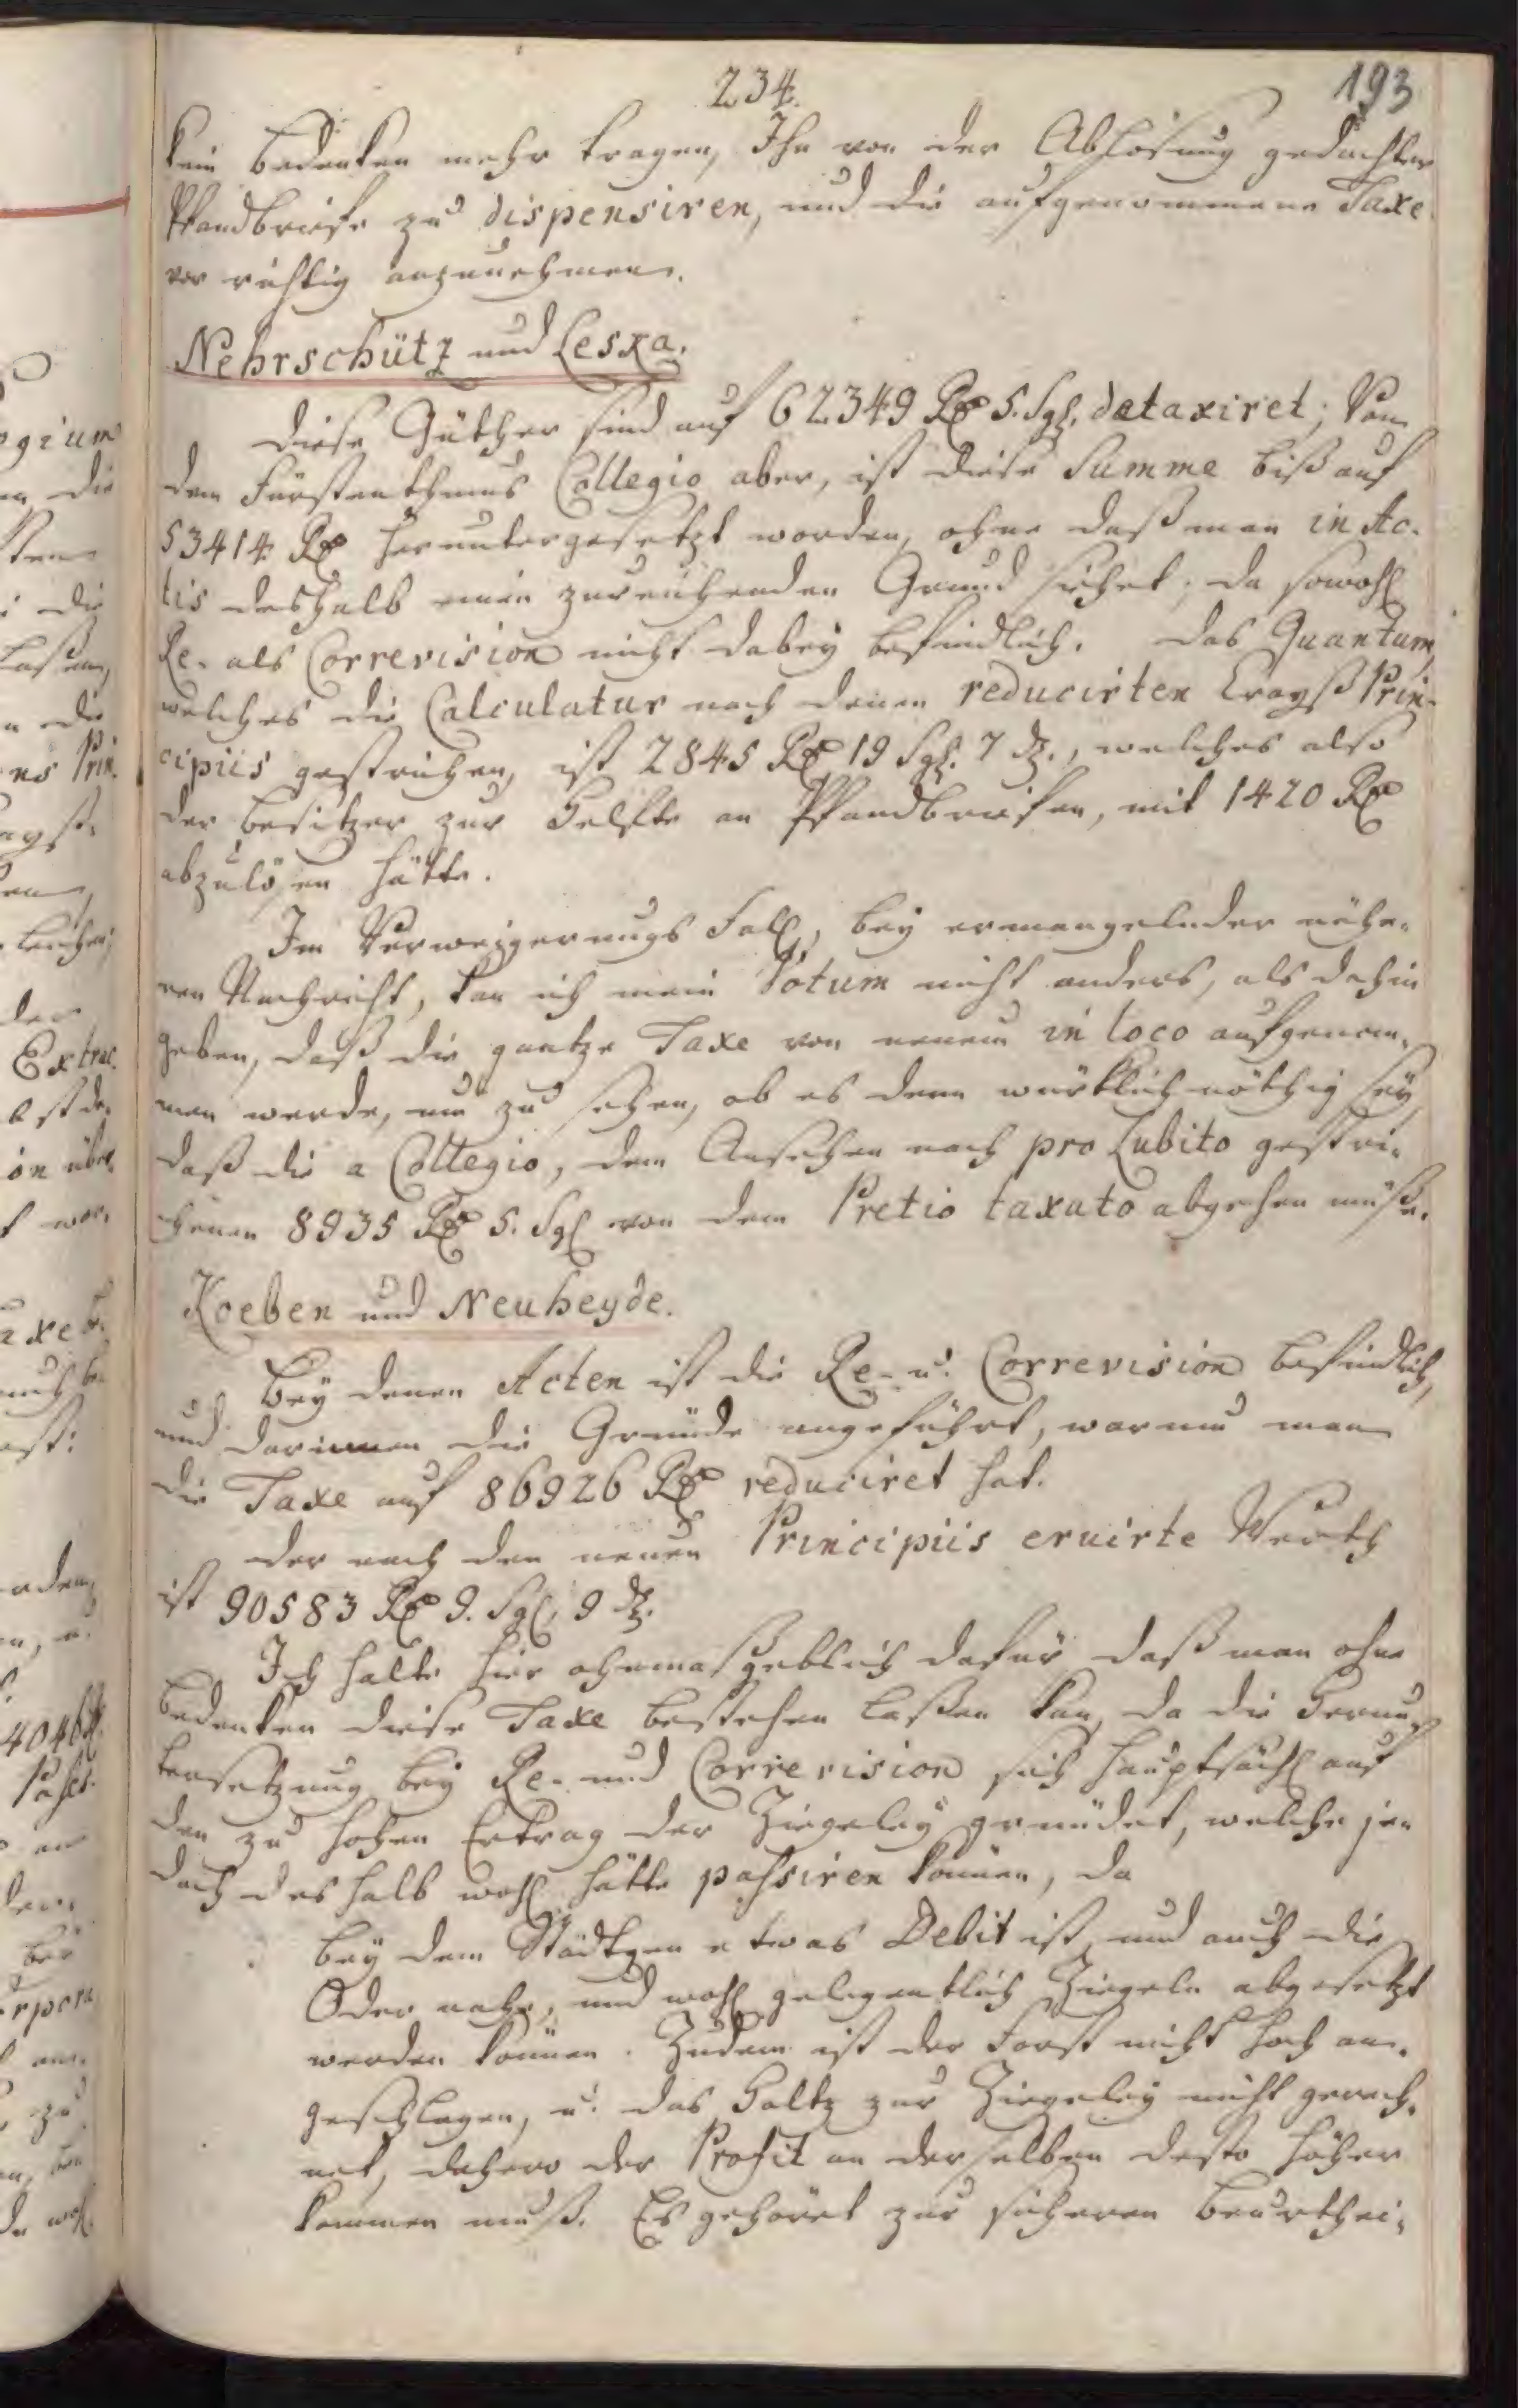 234.
193
kein Bedenken mehr tragen, Ihn von der Ablösung gedachter
Pfandbriefe zu dispensiren, und die aufgenommene Taxe
vor richtig anzunehmen.
Nehrschütz und Leska.
Diese Güther sind auf 62349 Rx 5. Sgl. detaxiret; Von
dem Fürstenthums Collegio aber, ist diese Summe biß auf
53414 Rx heruntergesetzt worden, ohne daß man in Ac-
tis deshalb einen zureichenden Grund siehet; da sowohl
Re- als Correvision nicht dabey befindlich. Das Quantum,
welches die Calculatur nach denen reducirten Crayß Prin-
cipiis gestrichen, ist 2845 Rx 19 Sgl. 7 d., welches also
der Besitzer zur Helfte an Pfandbriefen, mit 1420 Rx
abzulösen hätte.
Im Verweigerungs Fall, bey ermangelnder nähe-
ren Nachricht, kan ich mein Votum nicht anders, als dahin
geben, daß die gantze Taxe von neuem in loco aufgenom-
men werde, um zu sehen, ob es denn würklich nöthig sey,
daß die a Collegio, dem Ansehen nach pro Lubito gestri-
chenen 8935 Rx 5. Sgl von dem Pretio taxato abgehen müße.
Koeben und Neuheyde.
Bey denen Acten ist die Re- u. Correvision befindlich,
und darinnen die Gründe angeführt, warum man
die Taxe auf 86926 Rx reduciret hat.
Der nach den neuen Principiis eruirte Werth
ist 90583 Rx 9. Sgl. 9 d.
Ich halte hier ohnmaßgeblich dafür, daß man ohne
Bedenken diese Taxe bestehen laßen kan, da die Herun-
tersetzung bey Re- und Correvision sich hauptsächl auf
den zu hohen Ertrag der Ziegeley gründet, welche je-
doch deshalb wohl hätte passiren können, da
bey dem Städtgen etwas Debit ist, und auch die
Oder nahe, und wohl gelegentlich Ziegeln abgesetzt
werden können. Zudem ist der Forst nicht hoch an-
geschlagen, u. das Holtz zur Ziegeley nicht gerech-
net, dahero der Profit an derselben desto höher
kommen muß. Es gehöret zur sicheren Beurthei-